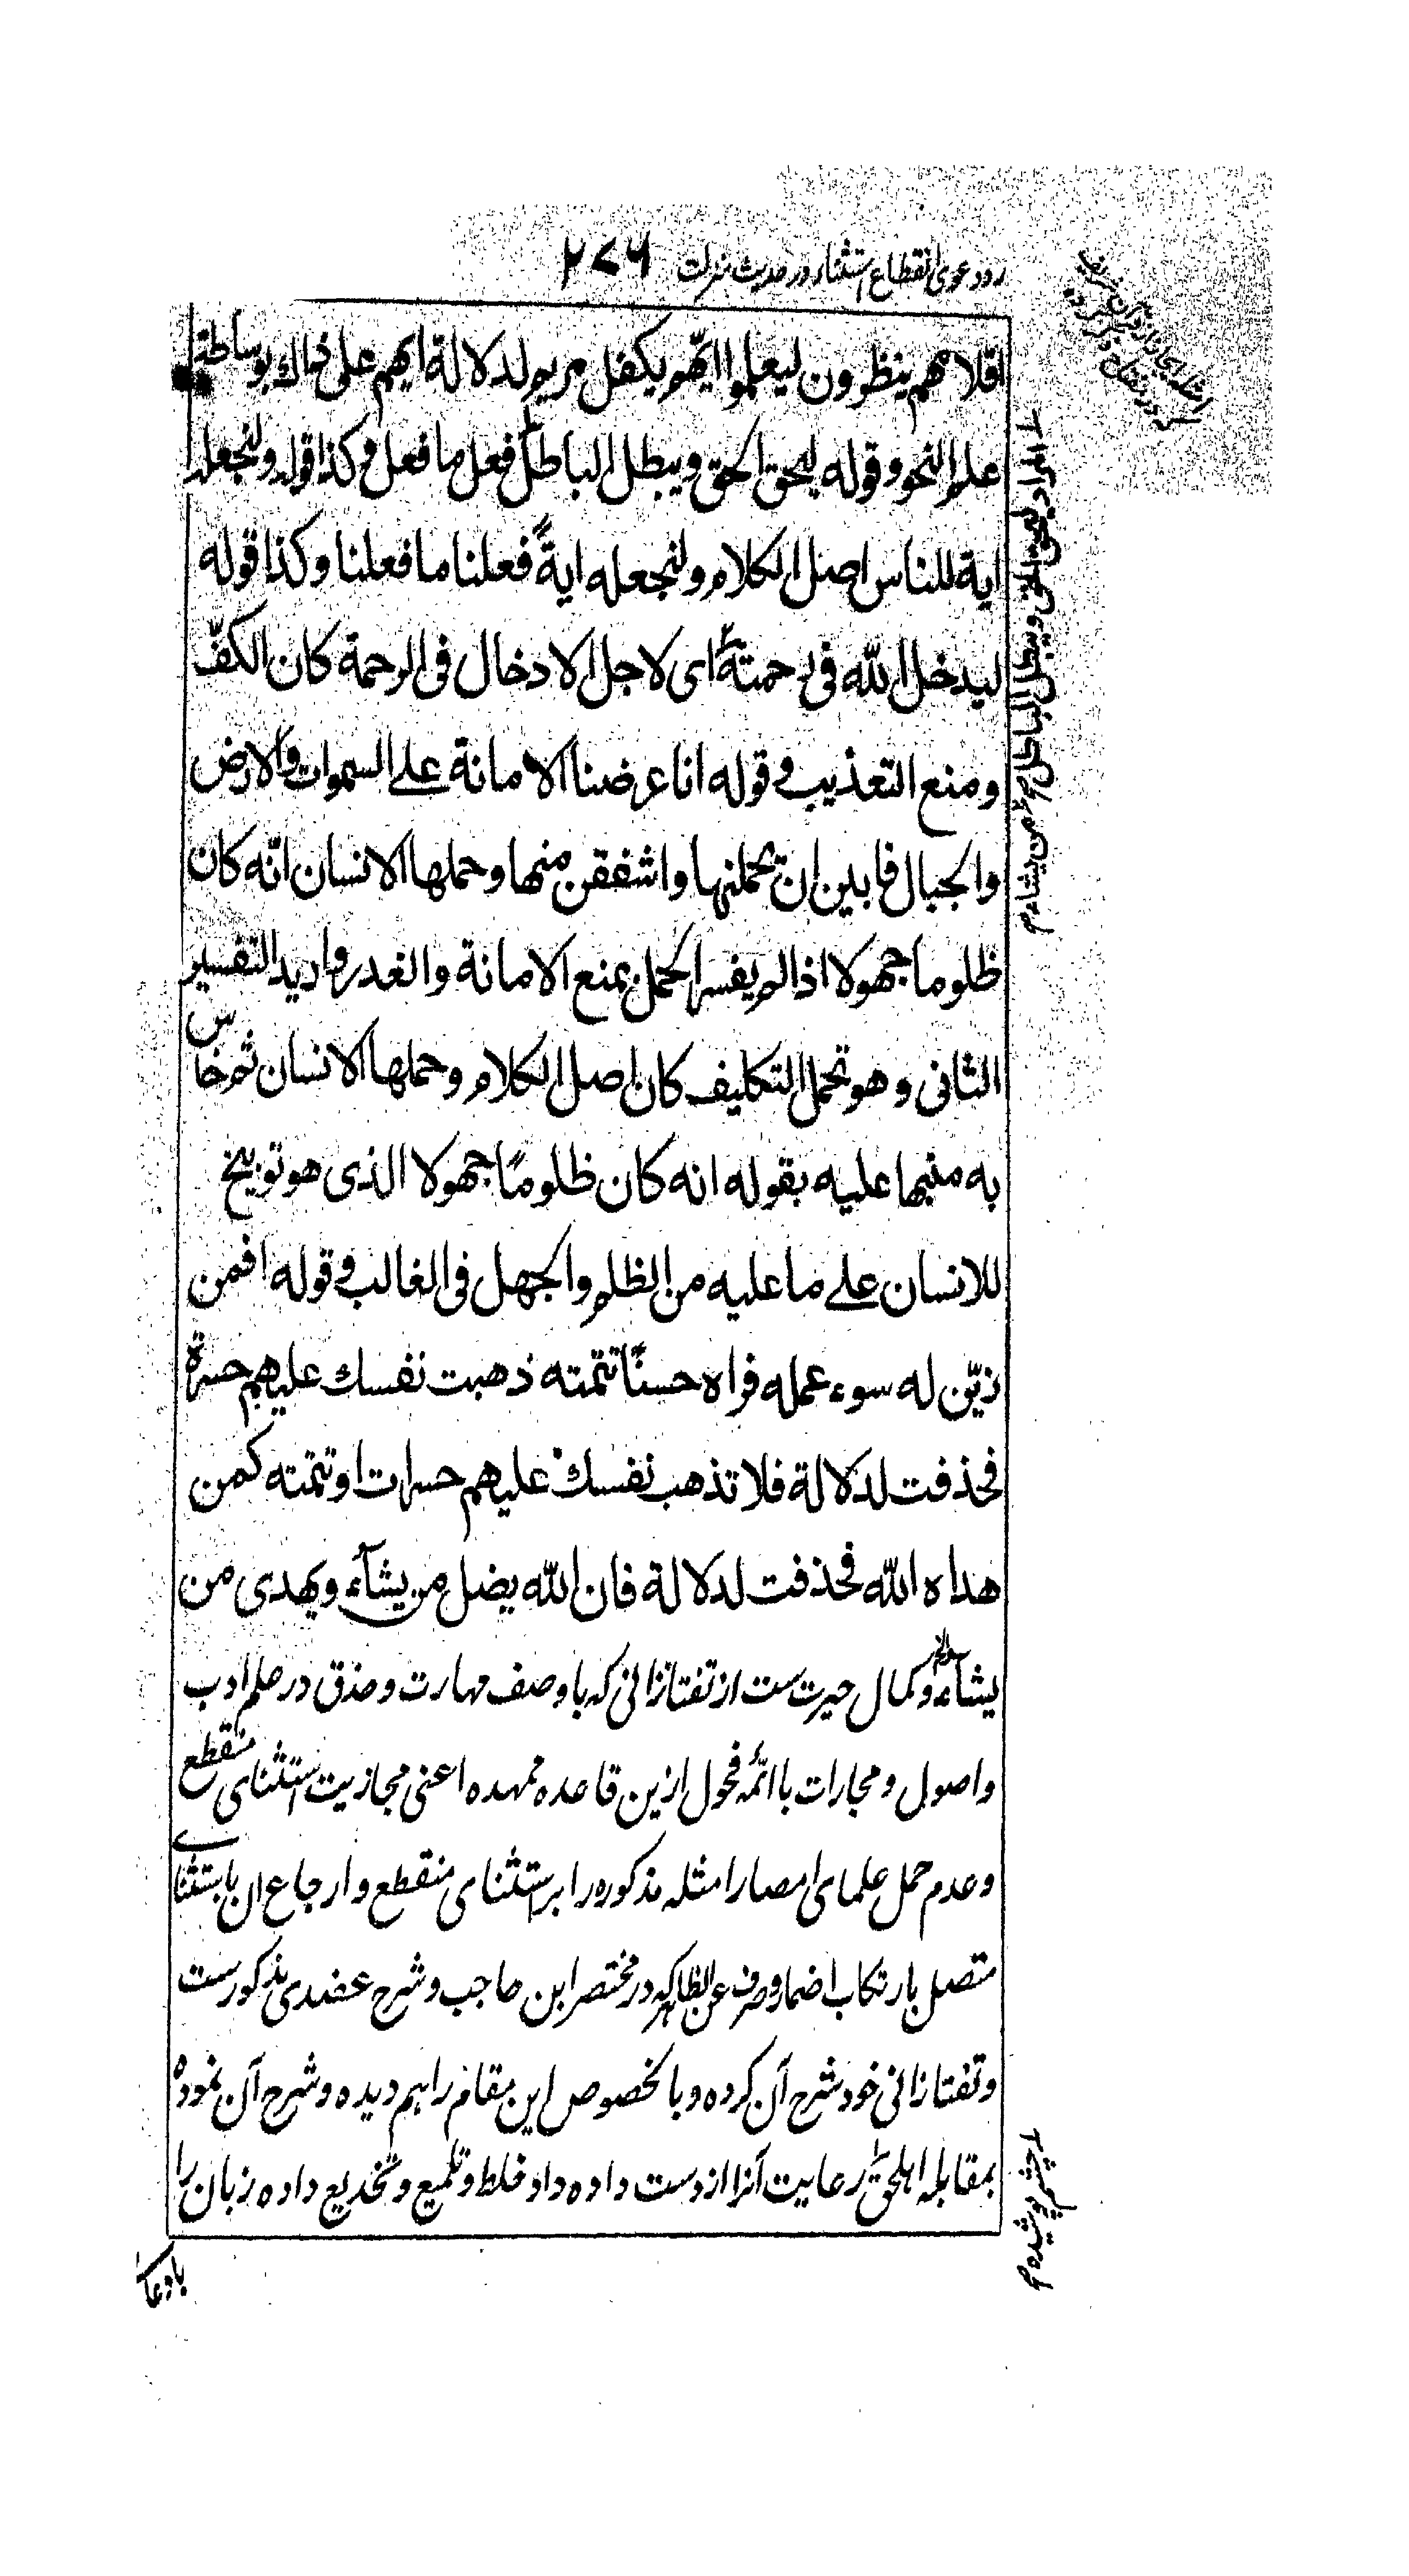 رد دعوی انقطاع استثناء در حدیث منزلت ۲۷۶
اقلامهم ينظرون ليعلموا ايّهم يكفل مريم لدلالة ايهم على ذلك بوساطة
علم النحو وقوله ليحق الحق ويبطل الباطل فعل ما فعل وكذا قوله ولنجعله
اية للناس اصل الكلام ولنجعله ايةً فعلنا ما فعلنا وكذا قوله
ليدخل الله في رحمته اى لاجل الادخال فى الرحمة كان الكفّ
ومنع التعذيب وقوله انا عرضنا الامانة على السموات والارض
والجبال فابين ان يحملنها واشفقن منها وحملها الانسان انّه كان
ظلوما جهولا اذا لم يفسر الحمل بمنع الامانة والغدر واريد التفسير
الثانى وهو تحمل التكليف كان اصل الكلام وحملها الانسان ثم خاس
به منبها عليه بقوله انه كان ظلومًا جهولا الذى هو توبيخ
للانسان على ما عليه من الظلم والجهل فى الغالب وقوله افمن
زيّن له سوء عمله فراه حسنًا تتمته ذهبت نفسك عليهم حسرة
فحذفت لدلالة فلا تذهب نفسك عليهم حسرات او تتمته كمن
هداه الله فحذفت لدلالة فان الله يضل من يشآء ويهدى من
يشآء وکمال حیرت ست از تفتازانی که با وصف مهارت و حذق در علم ادب
و اصول و مجارات با ائمّه فحول ازین قاعده ممهده اعنی مجازیت استثنای منقطع
و عدم حمل علمای امصار امثله مذکوره را بر استثنای منقطع و ارجاع ان باستثنای
متصل بارتکاب اضمار و صرف عن الظاهر که در مختصر ابن حاجب و شرح عضدی مذکورست
و تفتازانی خود شرح آن کرده و بالخصوص این مقام را هم دیده و شرح آن نموده
بمقابله اهل حق رعایت آنرا از دست داده داد غلط و تلمیع و تخدیع داده زبان را
بادعا